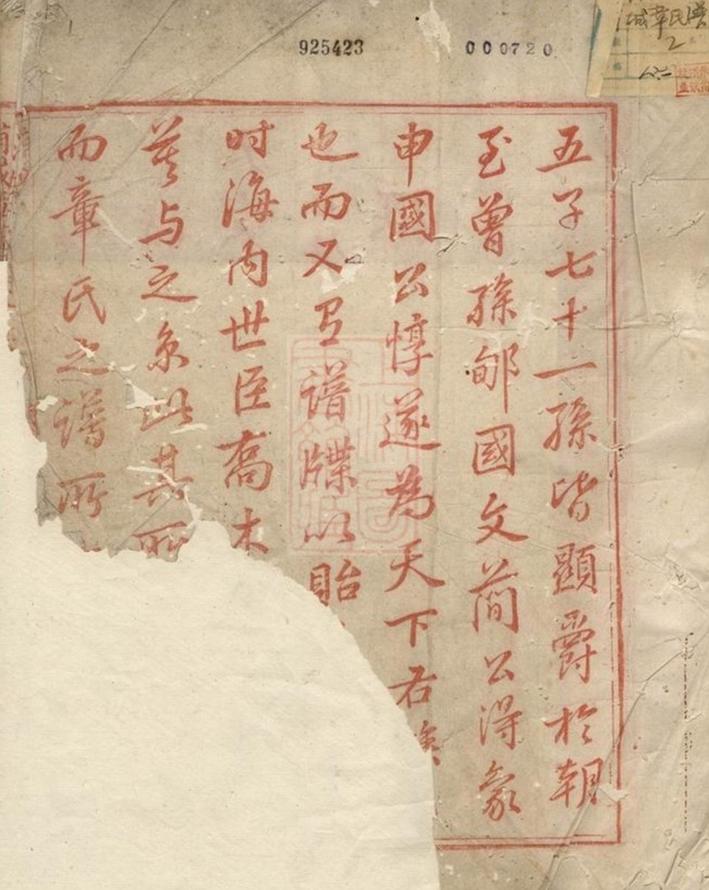 925423 000720
五子七十一孫皆顯爵於朝
至曾孫郇國文簡公得象
申國公惇遂為天下右
也而又有譜牒以貽
时海内世臣喬木
莫与之京此其所
而章氏之譜所